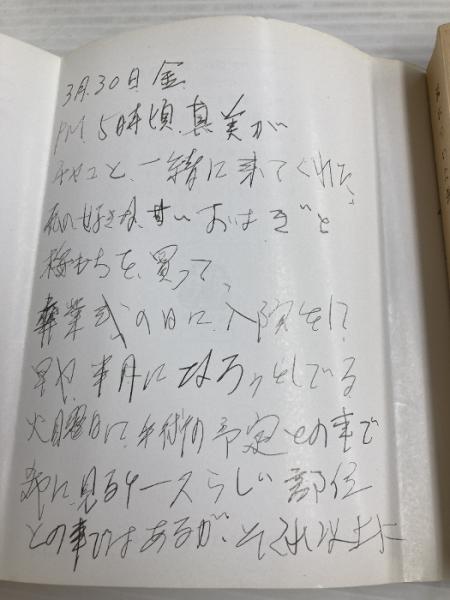 3月.30日 金
PM 5時頃.真美が
チャコと、一緒に来てくれた、
私の好きな、甘いおはぎと
梅もちを、買って、
卒業式の日に、入院をして
早や、半月になろうとしている
火曜日に、手術の予定との事で
稀に見るケースらしい部位
との事ではあるが、それ以上